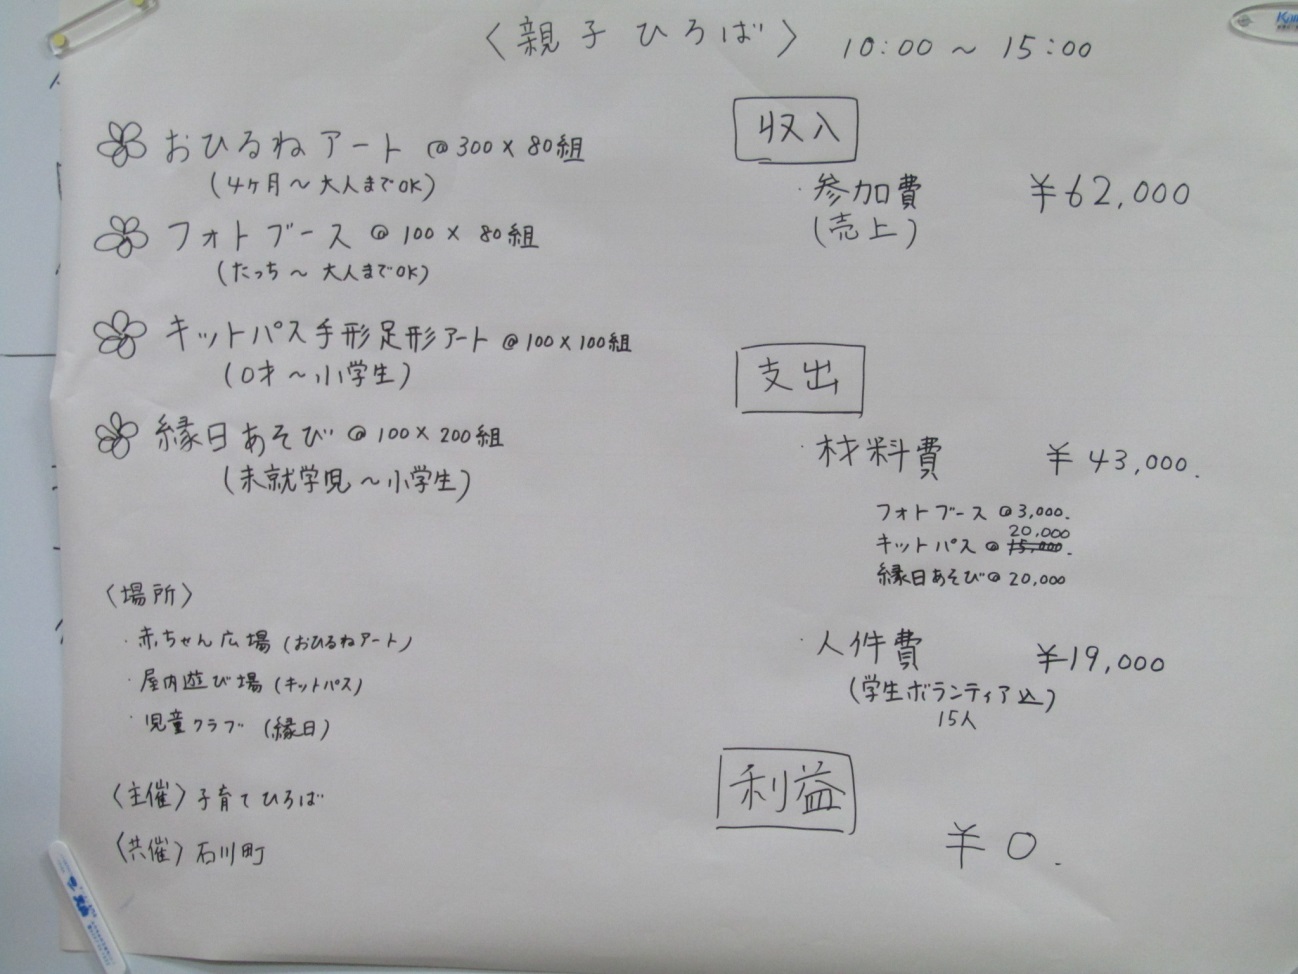 〈親子ひろば〉 10:00 ~ 15:00
おひるねアート @300×80組
(4ヶ月~大人までOK)
フォトブース @100×80組
(たっち~大人までOK)
キットパス手形足形アート @100×100組
(0才~小学生)
縁日あそび @100×200組
(未就学児~小学生)
〈場所〉
・赤ちゃん広場(おひるねアート)
・屋内遊び場(キットパス)
・児童クラブ(縁日)
〈主催〉子育てひろば
〈共催〉石川町
収入
・参加費 ¥62,000
(売上)
支出
・材料費 ¥43,000.
フォトブース @3,000.
20,000
キットパス @15,000.
縁日あそび@ 20,000
・人件費 ¥19,000
(学生ボランティア込)
15人
利益
¥0.